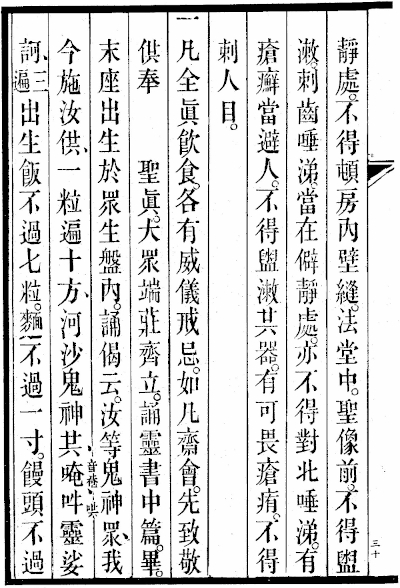 靜處。不得頓房內壁縫。法堂中。聖像前。不得盥
漱。刺齒唾涕。當在僻靜處。亦不得對北唾涕。有
瘡癬當避人。不得盥漱共器。有可畏瘡痏。不得
刺人目。
凡全眞飲食。各有威儀戒忌。如凡齋會。先致敬
供奉　聖眞。大眾端莊齊立。誦靈書中篇。畢。
末座出生於眾生盤內。誦偈云。汝等鬼神眾、我
今施汝供、一粒遍十方、河沙鬼神共唵吽靈娑
訶、三遍出生飯不過七粒。麵不過一寸。饅頭不過
三十